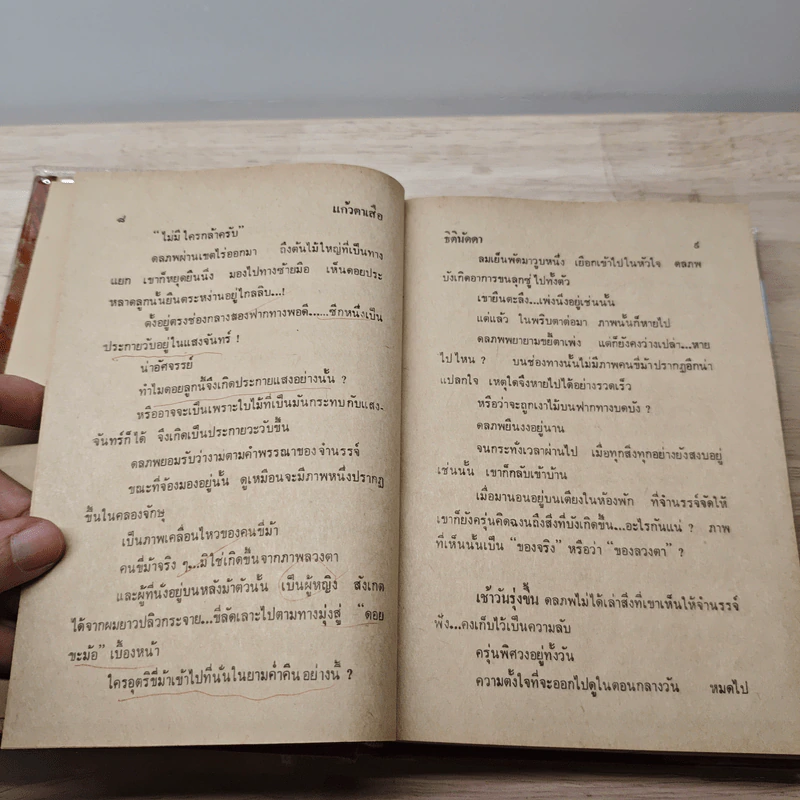 ๘
แก้วตาเสือ
"ไม่มีใครกล้าครับ"
ดลภพผ่านเขตไร่ออกมา ถึงต้นไม้ใหญ่ที่เป็นทาง
แยก เขาก็หยุดยืนนิ่ง มองไปทางซ้ายมือ เห็นดอยประ
หลาดลูกนั้นยืนตระหง่านอยู่ไกลลิบ...!
ตั้งอยู่ตรงช่องกลางสองฟากทางพอดี......ซีกหนึ่งเป็น
ประกายวับอยู่ในแสงจันทร์ !
น่าอัศจรรย์
ทำไมดอยลูกนี้จึงเกิดประกายแสงอย่างนั้น ?
หรืออาจจะเป็นเพราะใบไม้ที่เป็นมันกระทบกับแสง-
จันทร์ก็ได้ จึงเกิดเป็นประกายวะวับขึ้น
ดลภพยอมรับว่างามตามคำพรรณาของจำนรรจ์
ขณะที่จ้องมองอยู่นั้น ดูเหมือนจะมีภาพหนึ่งปรากฏ
ขึ้นในคลองจักษุ
เป็นภาพเคลื่อนไหวของคนขี่ม้า
คนขี่ม้าจริง ๆ...มิใช่เกิดขึ้นจากภาพลวงตา
และผู้ที่นั่งอยู่บนหลังม้าตัวนั้น เป็นผู้หญิง สังเกต
ได้จากผมยาวปลิวกระจาย...ขี่ลัดเลาะไปตามทางมุ่งสู่ "ดอย
ชะม้อ" เบื้องหน้า
ใครอุตริขี่ม้าเข้าไปที่นั่นในยามค่ำคืนอย่างนี้ ?
ธิตินัดดา
๙
ลมเย็นพัดมาวูบหนึ่ง เยือกเข้าไปในหัวใจ ดลภพ
บังเกิดอาการขนลุกซู่ไปทั้งตัว
เขายืนตะลึง...เพ่งนิ่งอยู่เช่นนั้น
แต่แล้ว ในพริบตาต่อมา ภาพนั้นก็หายไป
ดลภพพยายามขยี้ตาเพ่ง แต่ก็ยังคงว่างเปล่า...หาย
ไปไหน ? บนช่องทางนั้นไม่มีภาพคนขี่ม้าปรากฏอีกน่า
แปลกใจ เหตุใดจึงหายไปได้อย่างรวดเร็ว
หรือว่าจะถูกเงาไม้บนฟากทางบดบัง ?
ดลภพยืนงงอยู่นาน
จนกระทั่งเวลาผ่านไป เมื่อทุกสิ่งทุกอย่างยังสงบอยู่
เช่นนั้น เขาก็กลับเข้าบ้าน
เมื่อมานอนอยู่บนเตียงในห้องพัก ที่จำนรรจ์จัดให้
เขาก็ยังครุ่นคิดฉงนถึงสิ่งที่บังเกิดขึ้น...อะไรกันแน่ ? ภาพ
ที่เห็นนั้นเป็น "ของจริง" หรือว่า "ของลวงตา" ?
เช้าวันรุ่งขึ้น ดลภพไม่ได้เล่าสิ่งที่เขาเห็นให้จำนรรจ์
ฟัง...คงเก็บไว้เป็นความลับ
ครุ่นพิศวงอยู่ทั้งวัน
ความตั้งใจที่จะออกไปดูในตอนกลางวัน หมดไป